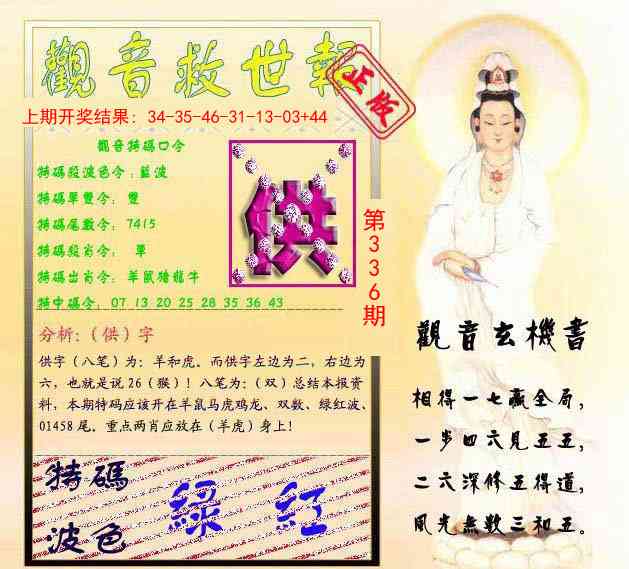 觀音救世報
正版
上期开奖结果：34-35-46-31-13-03+44
觀音特碼口令
特碼段波色令：藍波
特碼單雙令：雙
特碼尾數令：7415
特碼段肖令：單
特碼出肖令：羊鼠猪龍牛
特中碼令：07 13 20 25 28 35 36 43
供
第336期
分析：（供）字
供字（八笔）为：羊和虎。而供字左边为二，右边为
六，也就是说26（猴）！八笔为：（双）总结本报资
料，本期特码应该开在羊鼠马虎鸡龙、双数、绿红波、
01458尾。重点两肖应放在（羊虎）身上！
特碼
波色
綠 紅
觀音玄機書
相得一七贏全局，
一步四六見五五，
二六深修五得道，
風光無數三和五。